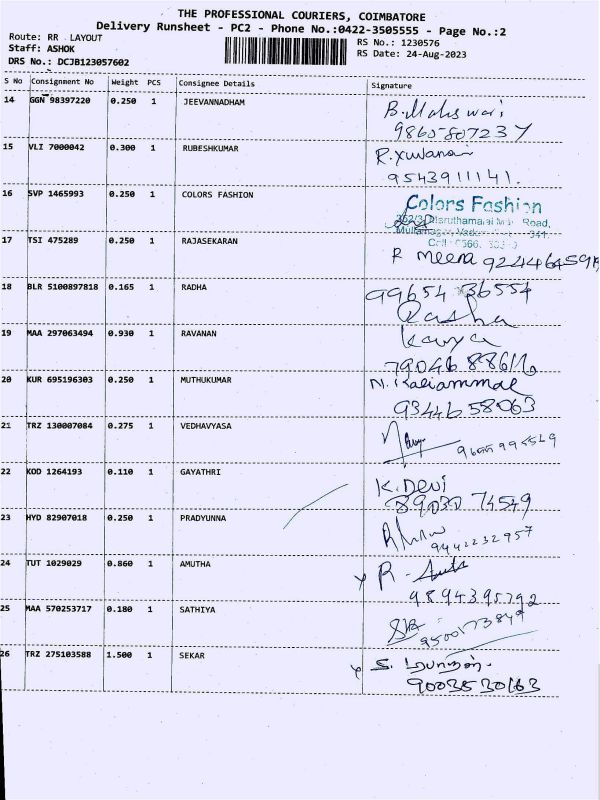 THE PROFESSIONAL COURIERS, COIMBATORE
Delivery Runsheet - PC2 - Phone No.:0422-3505555 - Page No.:2
Route: RR LAYOUT
RS No.: 1230576
Staff: ASHOK
RS Date: 24-Aug-2023
DRS No.: DCJB123057602
S No Consignment No Weight PCS Consignee Details Signature
14 GGN 98397220 0.250 1 JEEVANNADHAM
15 VLI 7000042 0.300 1 RUBESHKUMAR
9543911141.
16 SVP 1465993 0.250 1 COLORS FASHION Colors Fashion
Road,
17 TSI 475289 0.250 1 RAJASEKARAN R meena
18 BLR 5100897818 0.165 1 RADHA 99654 36554
Radha
19 MAA 297063494 0.930 1 RAVANAN Kavya
20 KUR 695196303 0.250 1 MUTHUKUMAR N. Kaliammal
9344658063
21 TRZ 130007084 0.275 1 VEDHAVYASA
22 KOD 1264193 0.110 1 GAYATHRI K. Devi
89030 74549
23 HYD 82907018 0.250 1 PRADYUNNA
9442232957
24 TUT 1029029 0.860 1 AMUTHA R -
9894395792
25 MAA 570253717 0.180 1 SATHIYA
26 TRZ 275103588 1.500 1 SEKAR
9003530163